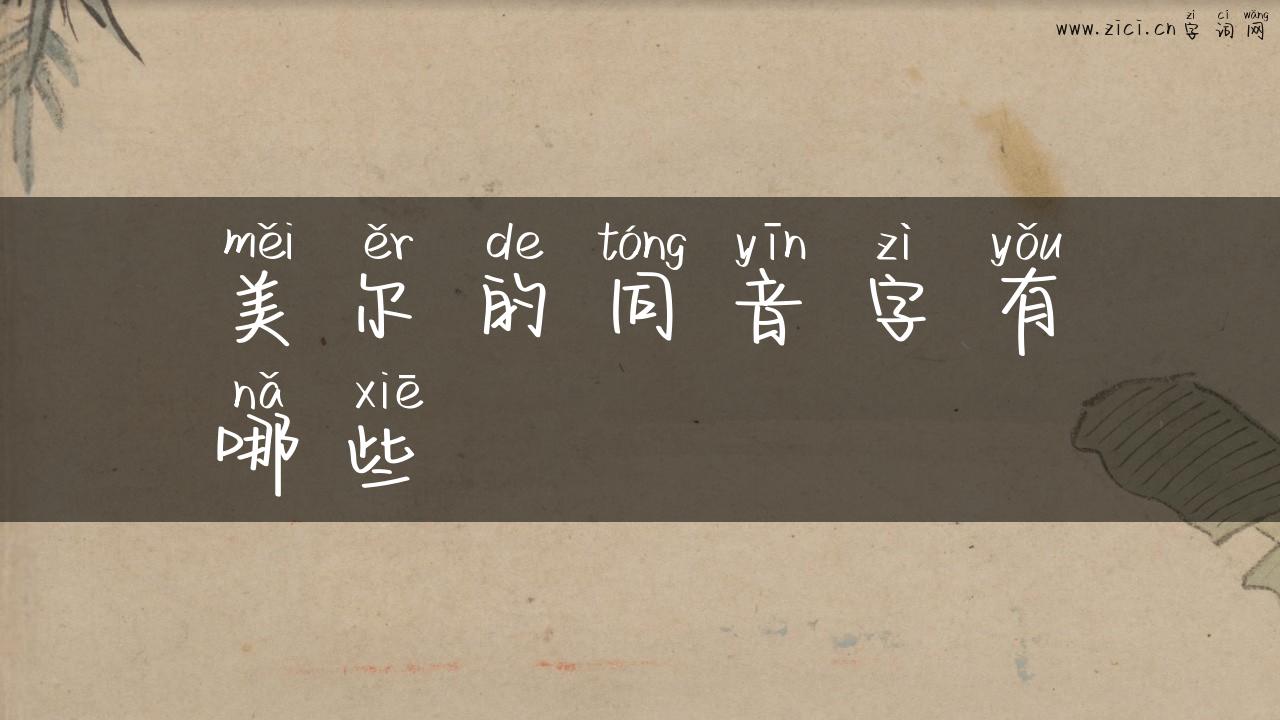 zì cí wǎng
www.zici.cn 字 词 网
měi ěr de tóng yīn zì yǒu
美 尔 的 同 音 字 有
nǎ xiē
哪 些